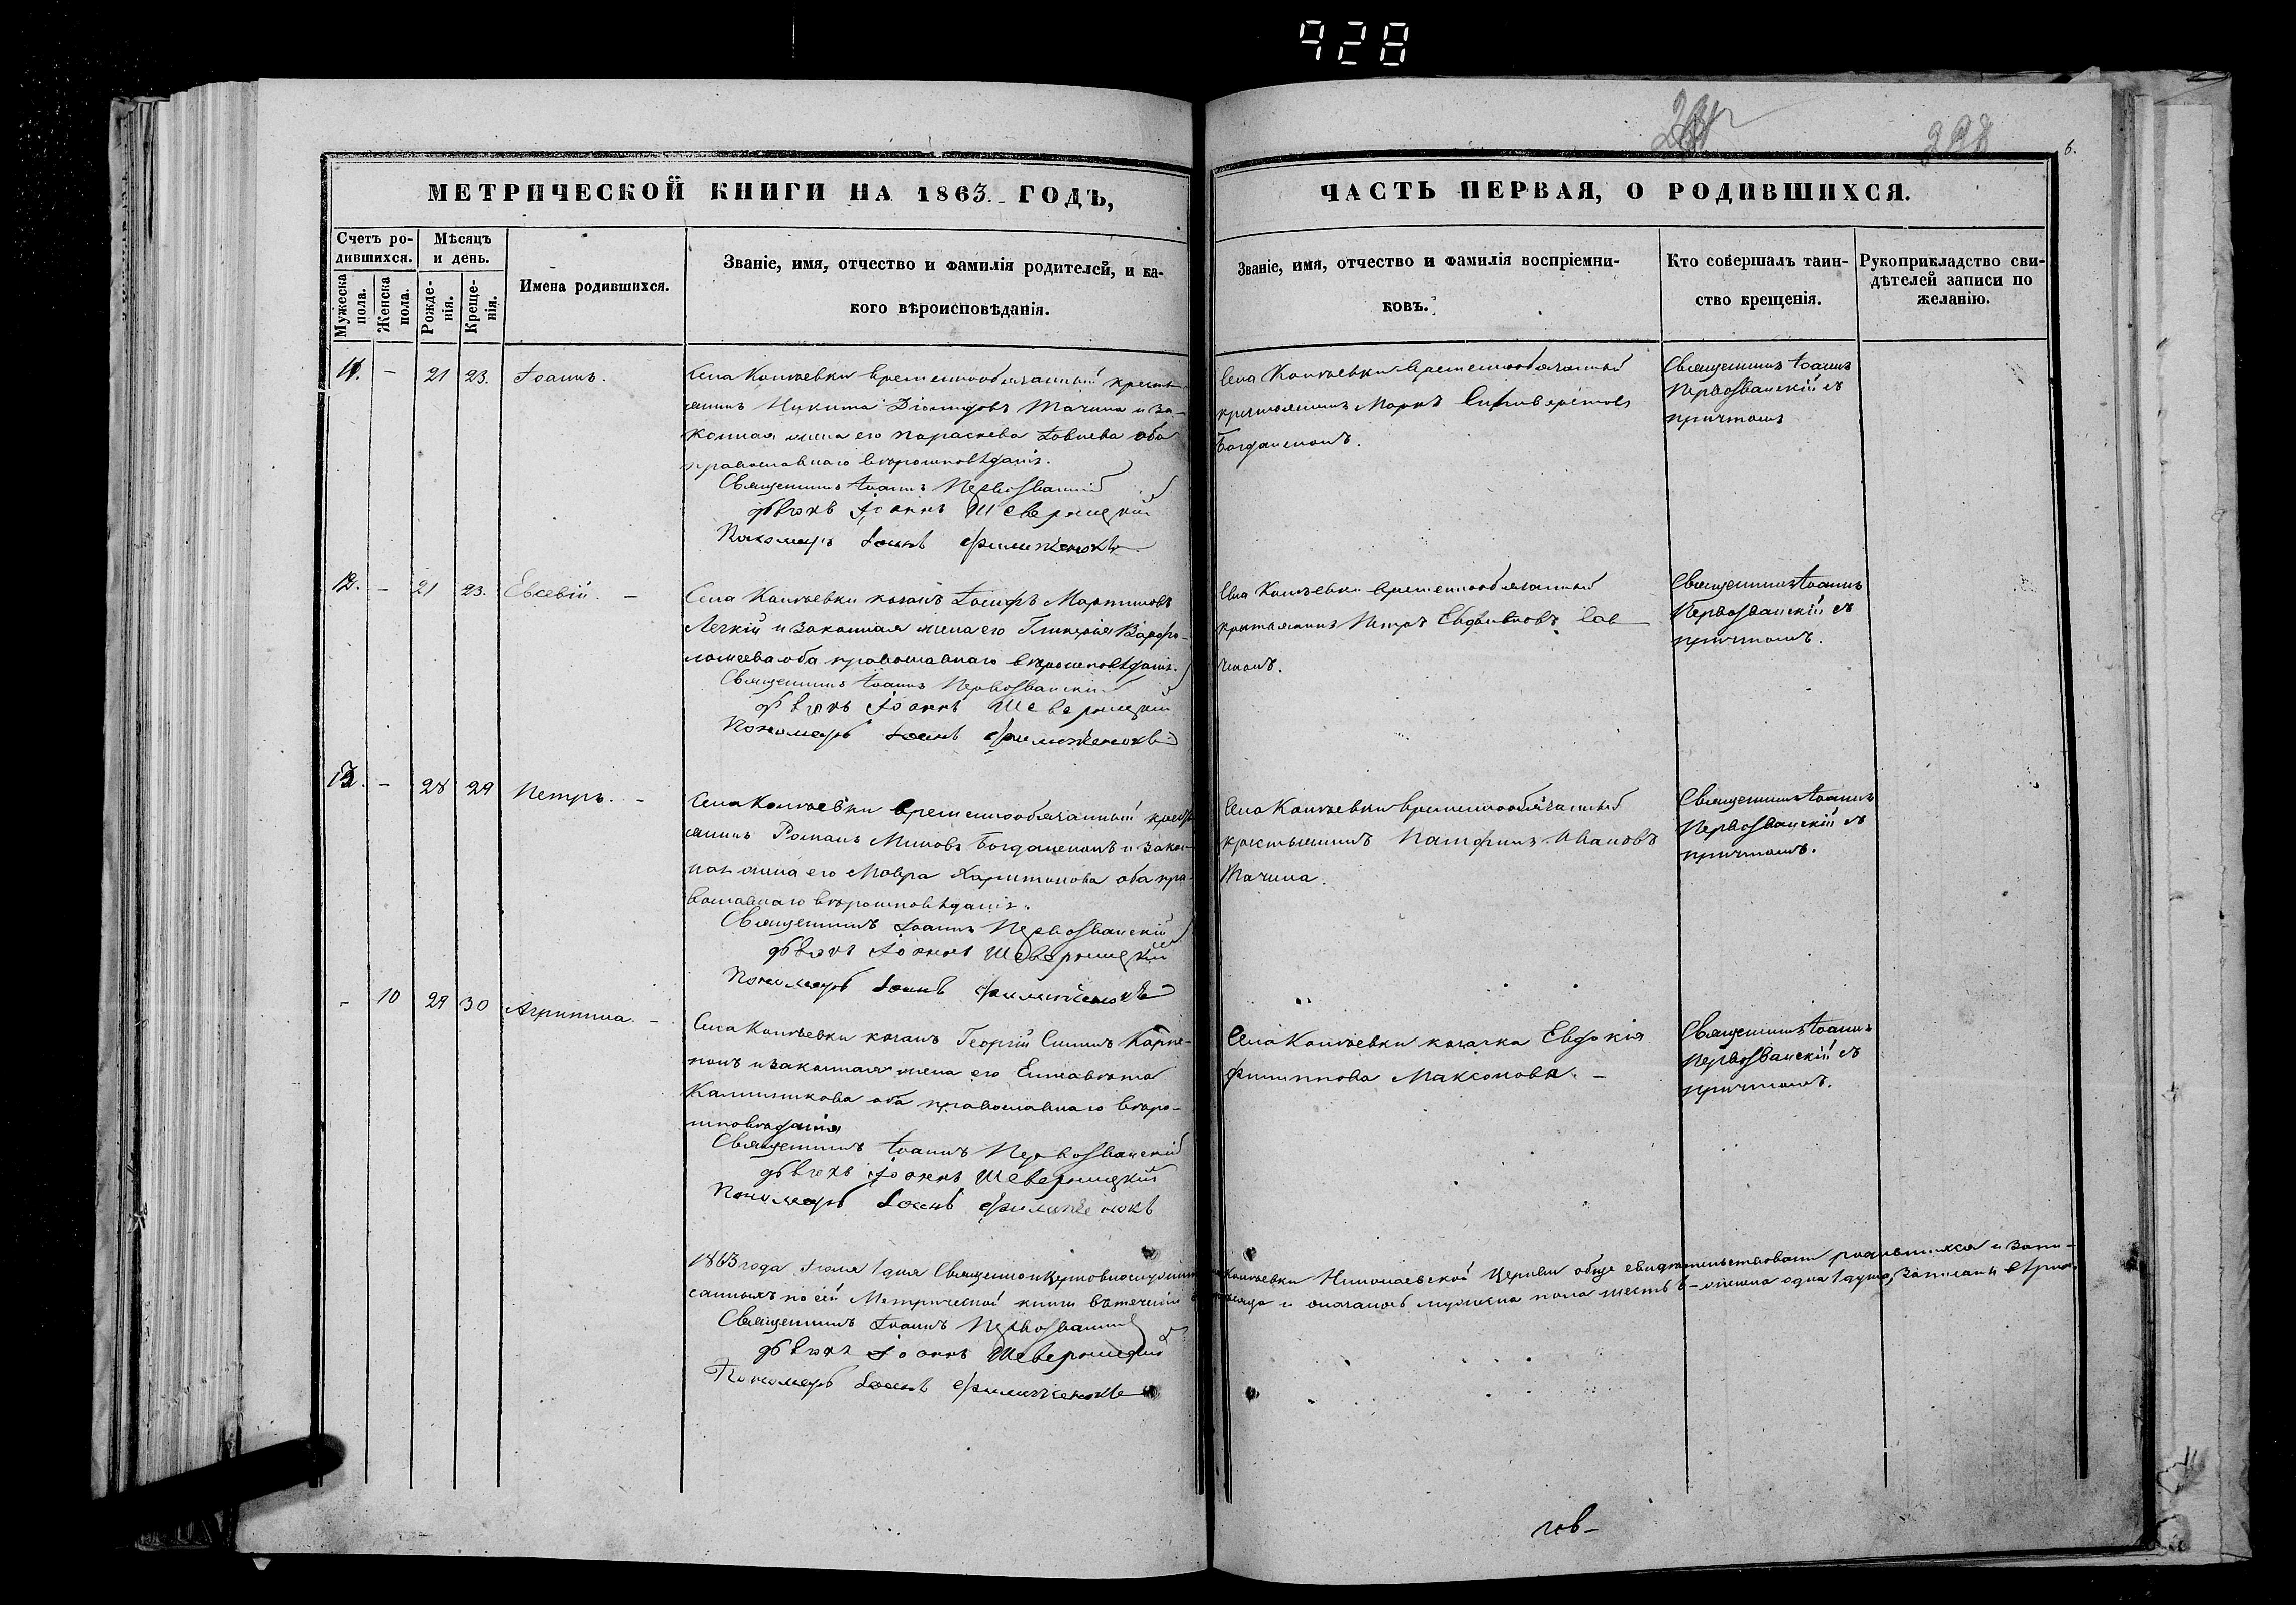 928
298
6.
МЕТРИЧЕСКОЙ КНИГИ НА 1863 ГОДЪ,
ЧАСТЬ ПЕРВАЯ, О РОДИВШИХСЯ.
Счетъ ро-
дившихся.
Мужеска
пола.
Женска
пола.
Мѣсяцъ
и день.
Рожде-
нія.
Креще-
нія.
Имена родившихся.
Званіе, имя, отчество и фамилія родителей, и ка-
кого вѣроисповѣданія.
Званіе, имя, отчество и фамилія воспріемни-
ковъ.
Кто совершалъ таин-
ство крещенія.
Рукоприкладство сви-
дѣтелей записи по
желанію.
11. - 21 23. Іоаннъ.
Села Копаевки временнообязанный кресть-
янинъ Никита Діомидовъ Тачина и за-
конная жена его Параскева Іовлева оба
православнаго вѣроисповѣданія.
Священникъ Іоаннъ Первозванскій
дьячекъ Іоаннъ Шеверницкій
Пономарь Іоаннъ
Села Копаевки временнообязанный
крестьянинъ Маркъ
Богданенокъ.
Священникъ Іоаннъ
Первозванскій съ
причтомъ
12. - 21 23. Евсевій. -
Села Копаевки козакъ Іосифъ Мартиновъ
Легкій и законная жена его Гликерія Варфо-
ломеева оба православнаго вѣроисповѣданія.
Священникъ Іоаннъ Первозванскій
дьячекъ Іоаннъ Шеверницкій
Пономарь Іоаннъ
Села Копаевки временнообязанный
крестьянинъ Петръ Сав-
ченокъ.
Священникъ Іоаннъ
Первозванскій съ
причтомъ.
13. - 28 29 Петръ. -
Села Копаевки временнообязанный кресть-
янинъ Романъ Миновъ Богданенокъ и закон-
ная жена его Мавра Харитонова оба пра-
вославнаго вѣроисповѣданія.
Священникъ Іоаннъ Первозванскій
дьячекъ Іоаннъ Шеверницкій
Пономарь Іоаннъ
Села Копаевки временнообязанный
крестьянинъ Памфилъ Ивановъ
Тачина.
Священникъ Іоаннъ
Первозванскій съ
причтомъ.
- 10 29 30 Агрипина. -
Села Копаевки козакъ Георгій Симинъ Карпе-
нокъ и законная жена его Елисавѣта
Калинникова оба православнаго вѣро-
исповѣданія
Священникъ Іоаннъ Первозванскій
дьячекъ Іоаннъ Шеверницкій
Пономарь Іоаннъ
Села Копаевки козачка Евдокія
Филиппова Максимова. -
Священникъ Іоаннъ
Первозванскій съ
причтомъ.
1863 года Іюля 1 дня Священно и Церковнослужители Копаевки Николаевской Церкви обще свидѣтельствовали родившихся и запи-
санныхъ по сей Метрической книги въ теченіи и оказалось мужеска пола шесть 6 - женска одна 1 душа, записаны вѣрно.
Священникъ Іоаннъ Первозванскій
дьячекъ Іоаннъ Шеверницкій
Пономарь Іоаннъ